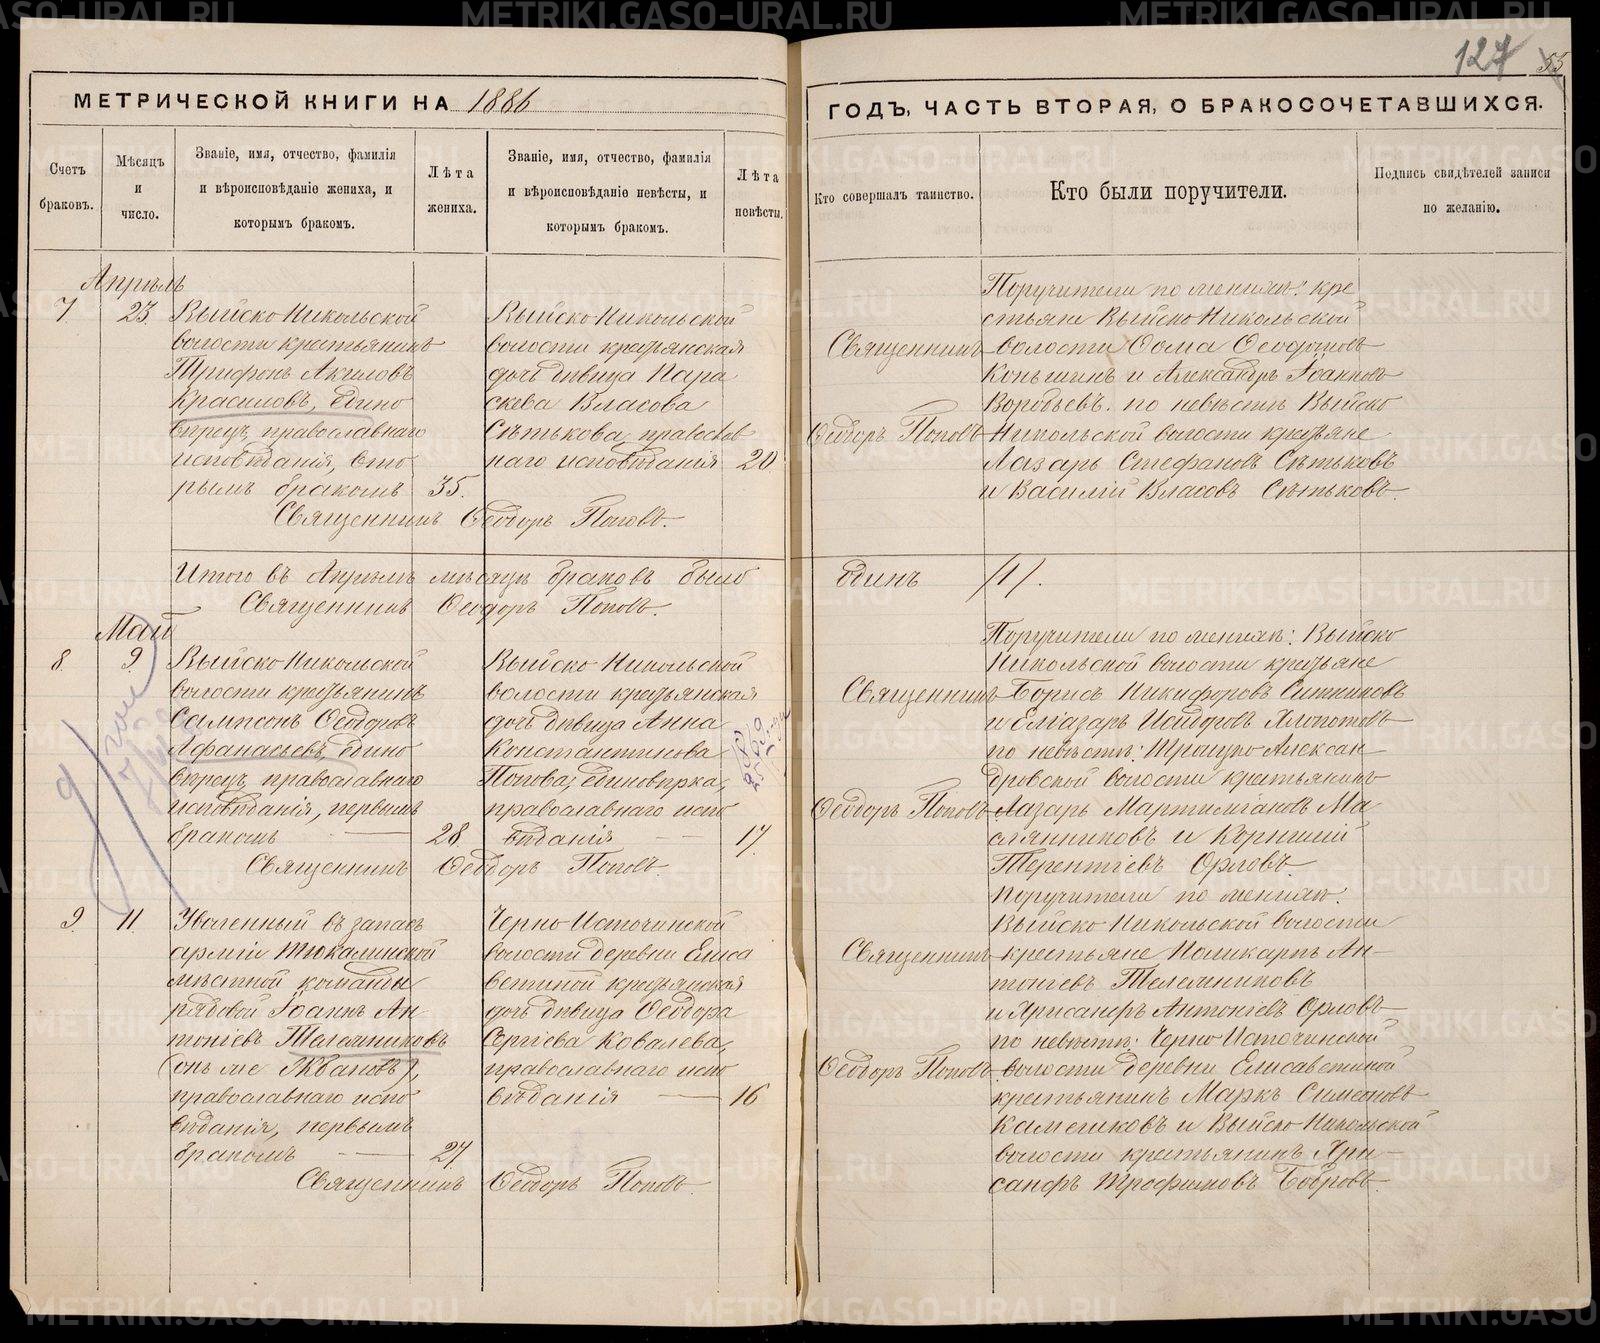 127 53
МЕТРИЧЕСКОЙ КНИГИ НА 1886
ГОДЪ, ЧАСТЬ ВТОРАЯ, О БРАКОСОЧЕТАВШИХСЯ.
Счетъ
браковъ.
Мѣсяцъ
и
число.
Званіе, имя, отчество, фамилія
и вѣроисповѣданіе жениха, и
которымъ бракомъ.
Лѣта
жениха.
Званіе, имя, отчество, фамилія
и вѣроисповѣданіе невѣсты, и
которымъ бракомъ.
Лѣта
невѣсты.
Кто совершалъ таинство.
Кто были поручители.
Подпись свидѣтелей записи
по желанію.
Апрѣль
7
23.
Выйско Никольской
волости крестьянинъ
Трифонъ Акиловъ
Красиловъ, едино
вѣрецъ, православнаго
исповѣданія, вто
рымъ бракомъ 35.
Выйско Никольской
волости крестьянская
дочь дѣвица Пара
скева Власова
Сѣтькова, православ
наго исповѣданія 20
Священникъ Ѳеодоръ Поповъ.
Священникъ
Ѳеодоръ Поповъ
Поручители по женихѣ: кре
стьяне Выйско Никольской
волости Ѳома Ѳеофановъ
Коньшинъ и Александръ Іоанновъ
Воробьевъ. по невѣстѣ Выйско
Никольской волости крестьяне
Лазарь Стефановъ Сѣтьковъ
и Василій Власовъ Сѣтьковъ.
Итого въ Апрѣлѣ мѣсяцѣ браковъ было единъ /1/.
Священникъ Ѳеодоръ Поповъ.
Май
8
9.
Выйско Никольской
волости крестьянинъ
Сампсонъ Ѳеодоровъ
Афанасьевъ, едино
вѣрецъ, православнаго
исповѣданія, первымъ
бракомъ — 28.
Выйско Никольской
волости крестьянская
дочь дѣвица Анна
Константинова
Попова, единовѣрка,
православнаго испо
вѣданія — 17.
Священникъ Ѳеодоръ Поповъ.
Священникъ
Ѳеодоръ Поповъ
Поручители по женихѣ: Выйско
Никольской волости крестьяне
Борисъ Никифоровъ Ситниковъ
и Елiазаръ Исидоровъ Хлопотовъ
по невѣстѣ: Троицко Алексан
дровской волости крестьянинъ
Лазарь Мартиміановъ Ма
слянниковъ и Корнилій
Терентіевъ Орловъ.
9.
11.
Уволенный въ запасъ
арміи Тюкалинской
мѣстной команды
рядовой Іоаннъ Ан
тоніевъ Телегинниковъ
(онъ же Жвановъ),
православнаго испо
вѣданія, первымъ
бракомъ — 27.
Черно Источинской
волости деревни Елиса
ветиной крестьянская
дочь дѣвица Ѳеодора
Сергіева Ковалева,
православнаго испо
вѣданія — 16
Священникъ Ѳеодоръ Поповъ.
Священникъ
Ѳеодоръ Поповъ
Поручители по женихѣ:
Выйско Никольской волости
крестьяне Поликарпъ Ан-
тоніевъ
и Хрисанфъ Антоніевъ Орловъ
по невѣстѣ: Черно Источинской
волости деревни Елисаветиной
крестьянинъ Маркъ Симеоновъ
и Выйско Никольской
волости крестьянинъ Хри-
санфъ Трофимовъ Бобровъ.
METRIKI.GASO-URAL.RU